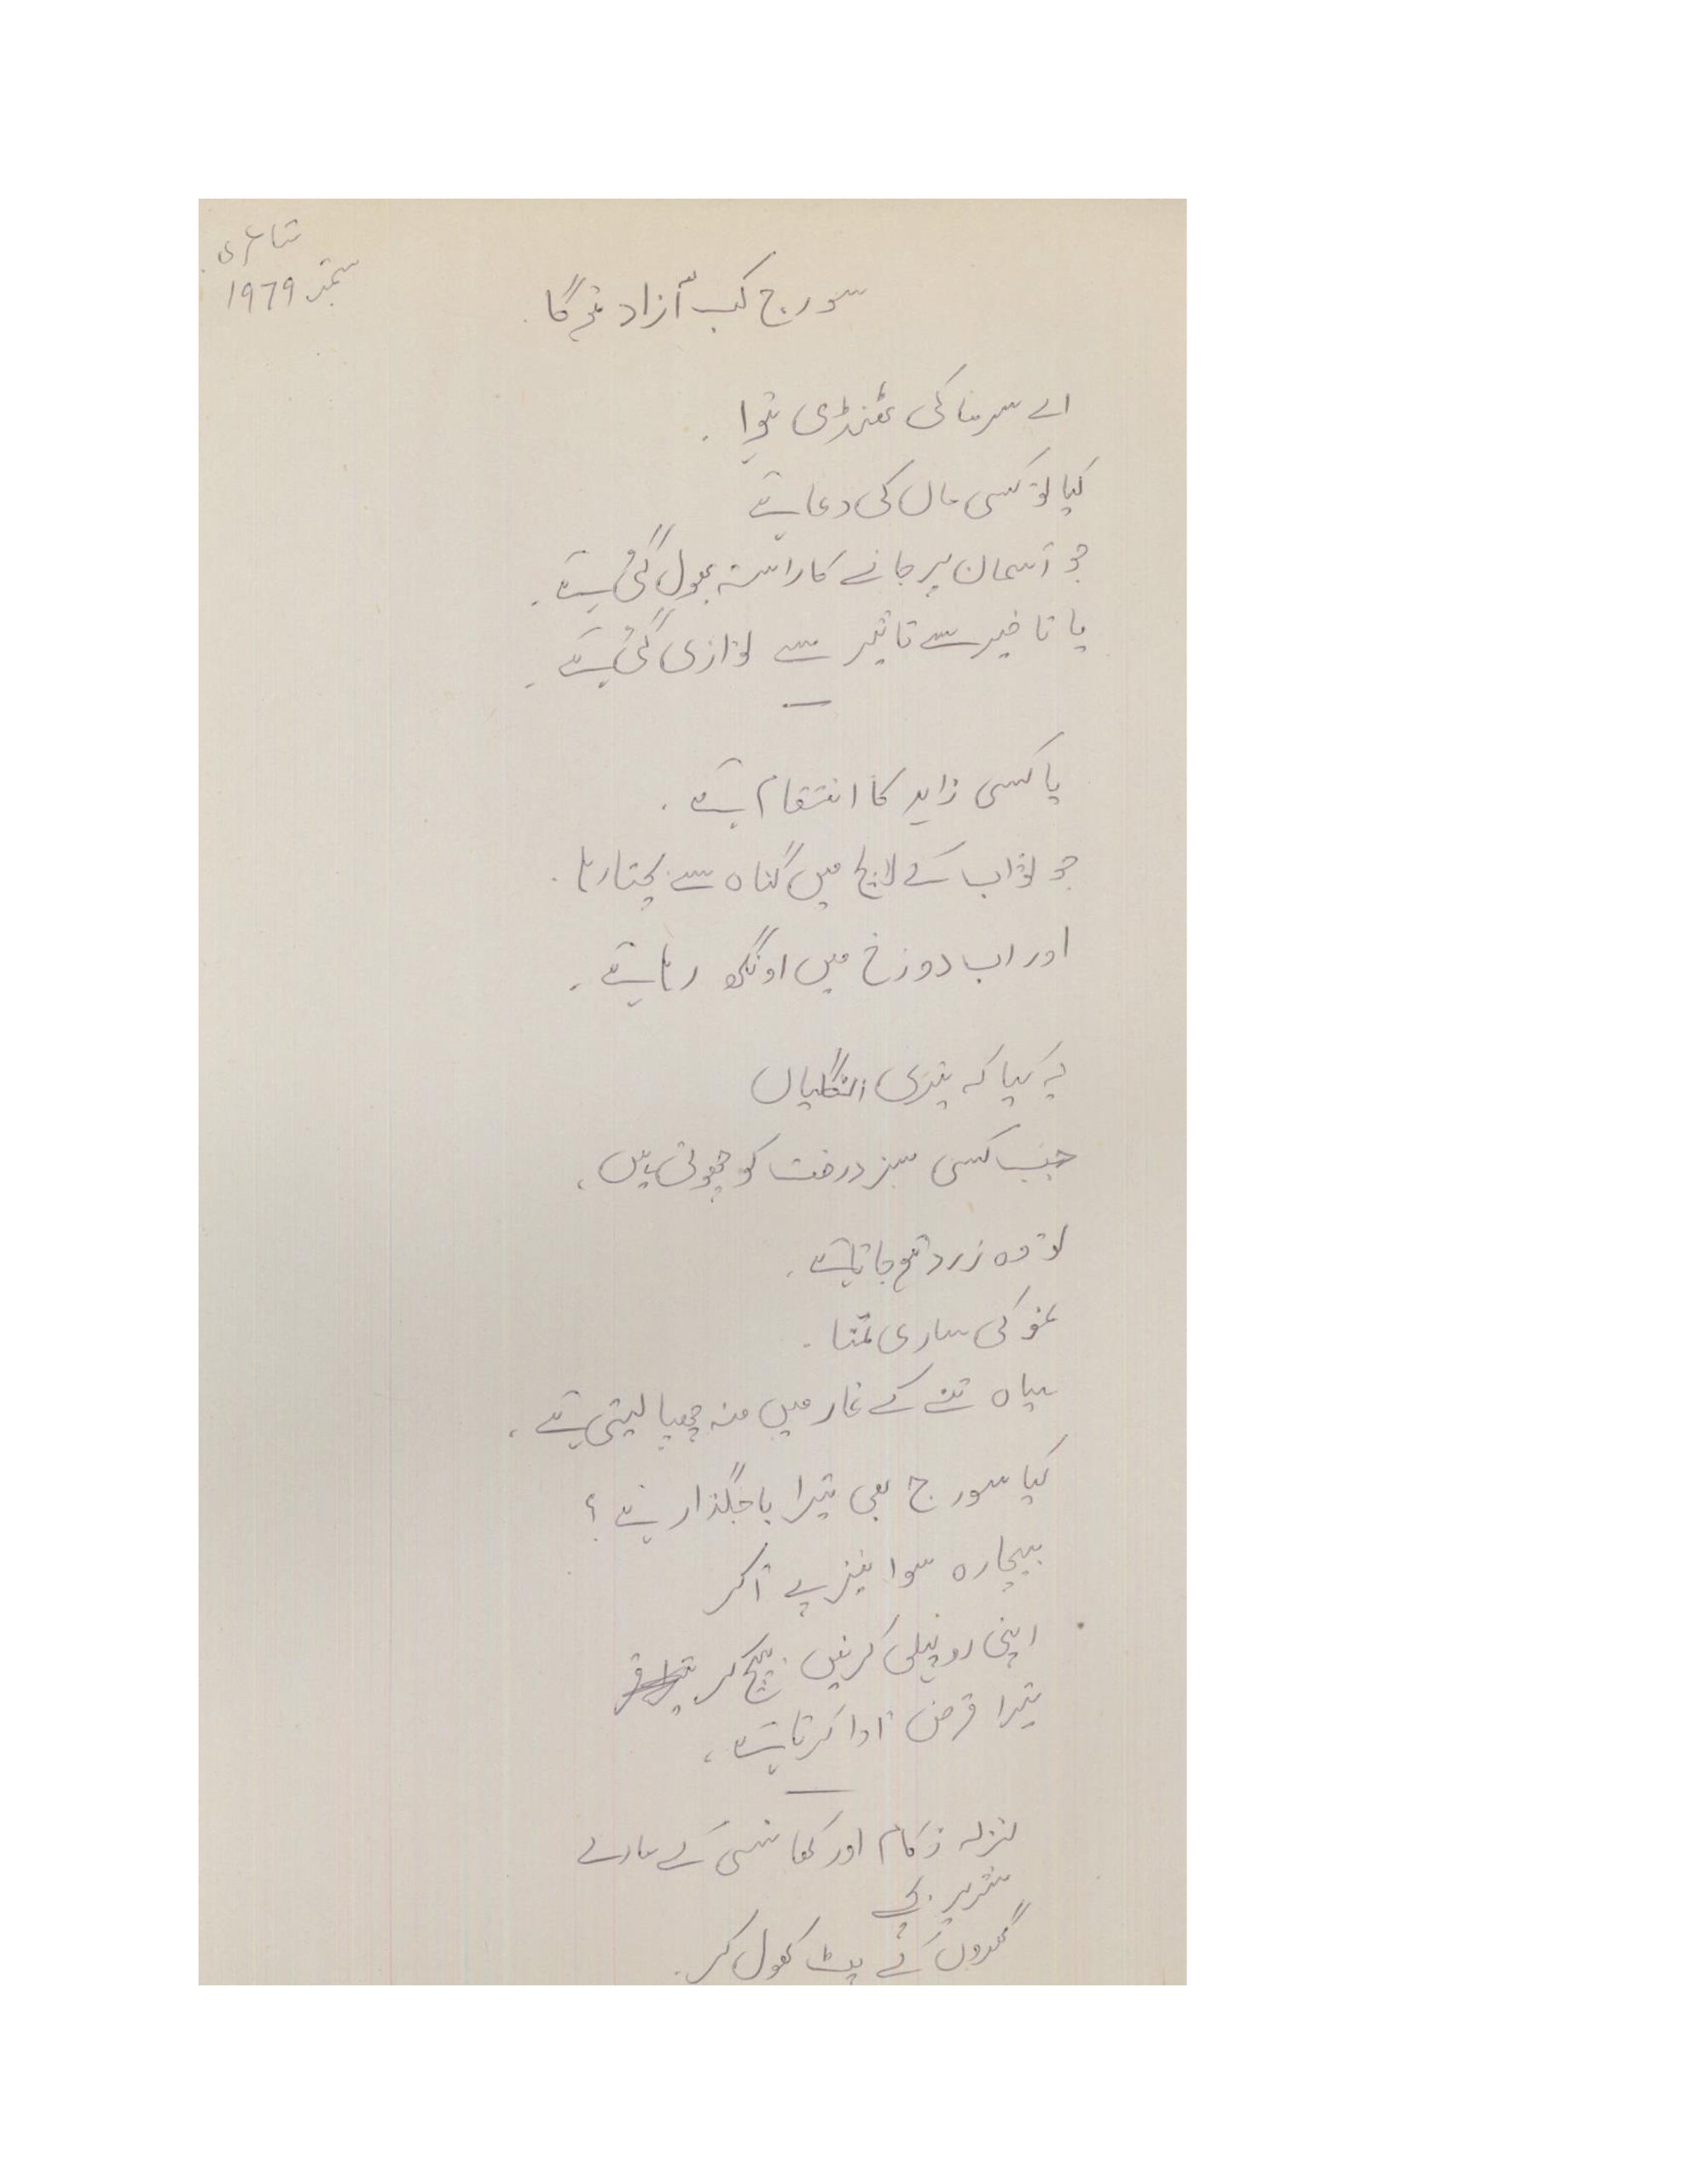 شاعری
ستمبر 1979
سورج کب آزاد ہوگا
اے سرما کی ٹھنڈی ہوا ۔
کیا تو کسی ماں کی دعا ہے
جو آسمان پر جانے کا راستہ بھول گئی ہے ۔
یا تاخیر سے تاثیر سے نوازی گئی ہے ۔
—
یا کسی زاہد کا انتقام ہے ۔
جو ثواب کے لالچ میں گناہ سے بچتا رہا ۔
اور اب دوزخ میں اونگھ رہا ہے ۔
یہ کیا کہ تیری انگلیاں
جب کسی سبز درخت کو چھوتی ہیں ،
تو وہ زرد ہو جاتا ہے ۔
نمو کی ساری تمنا ۔
سیاہ تنے کے غار میں منہ چھپا لیتی ہے ،
کیا سورج بھی تیرا باجگذار ہے ؟
بیچارہ سوا نیزے پے آکر
اپنی روپہلی کرنیں بیچ کر
تیرا قرض ادا کرتا ہے ،
—
نزلہ زکام اور کھانسی کے مارے
شریر بچے
گھروں کے پٹ کھول کر ۔